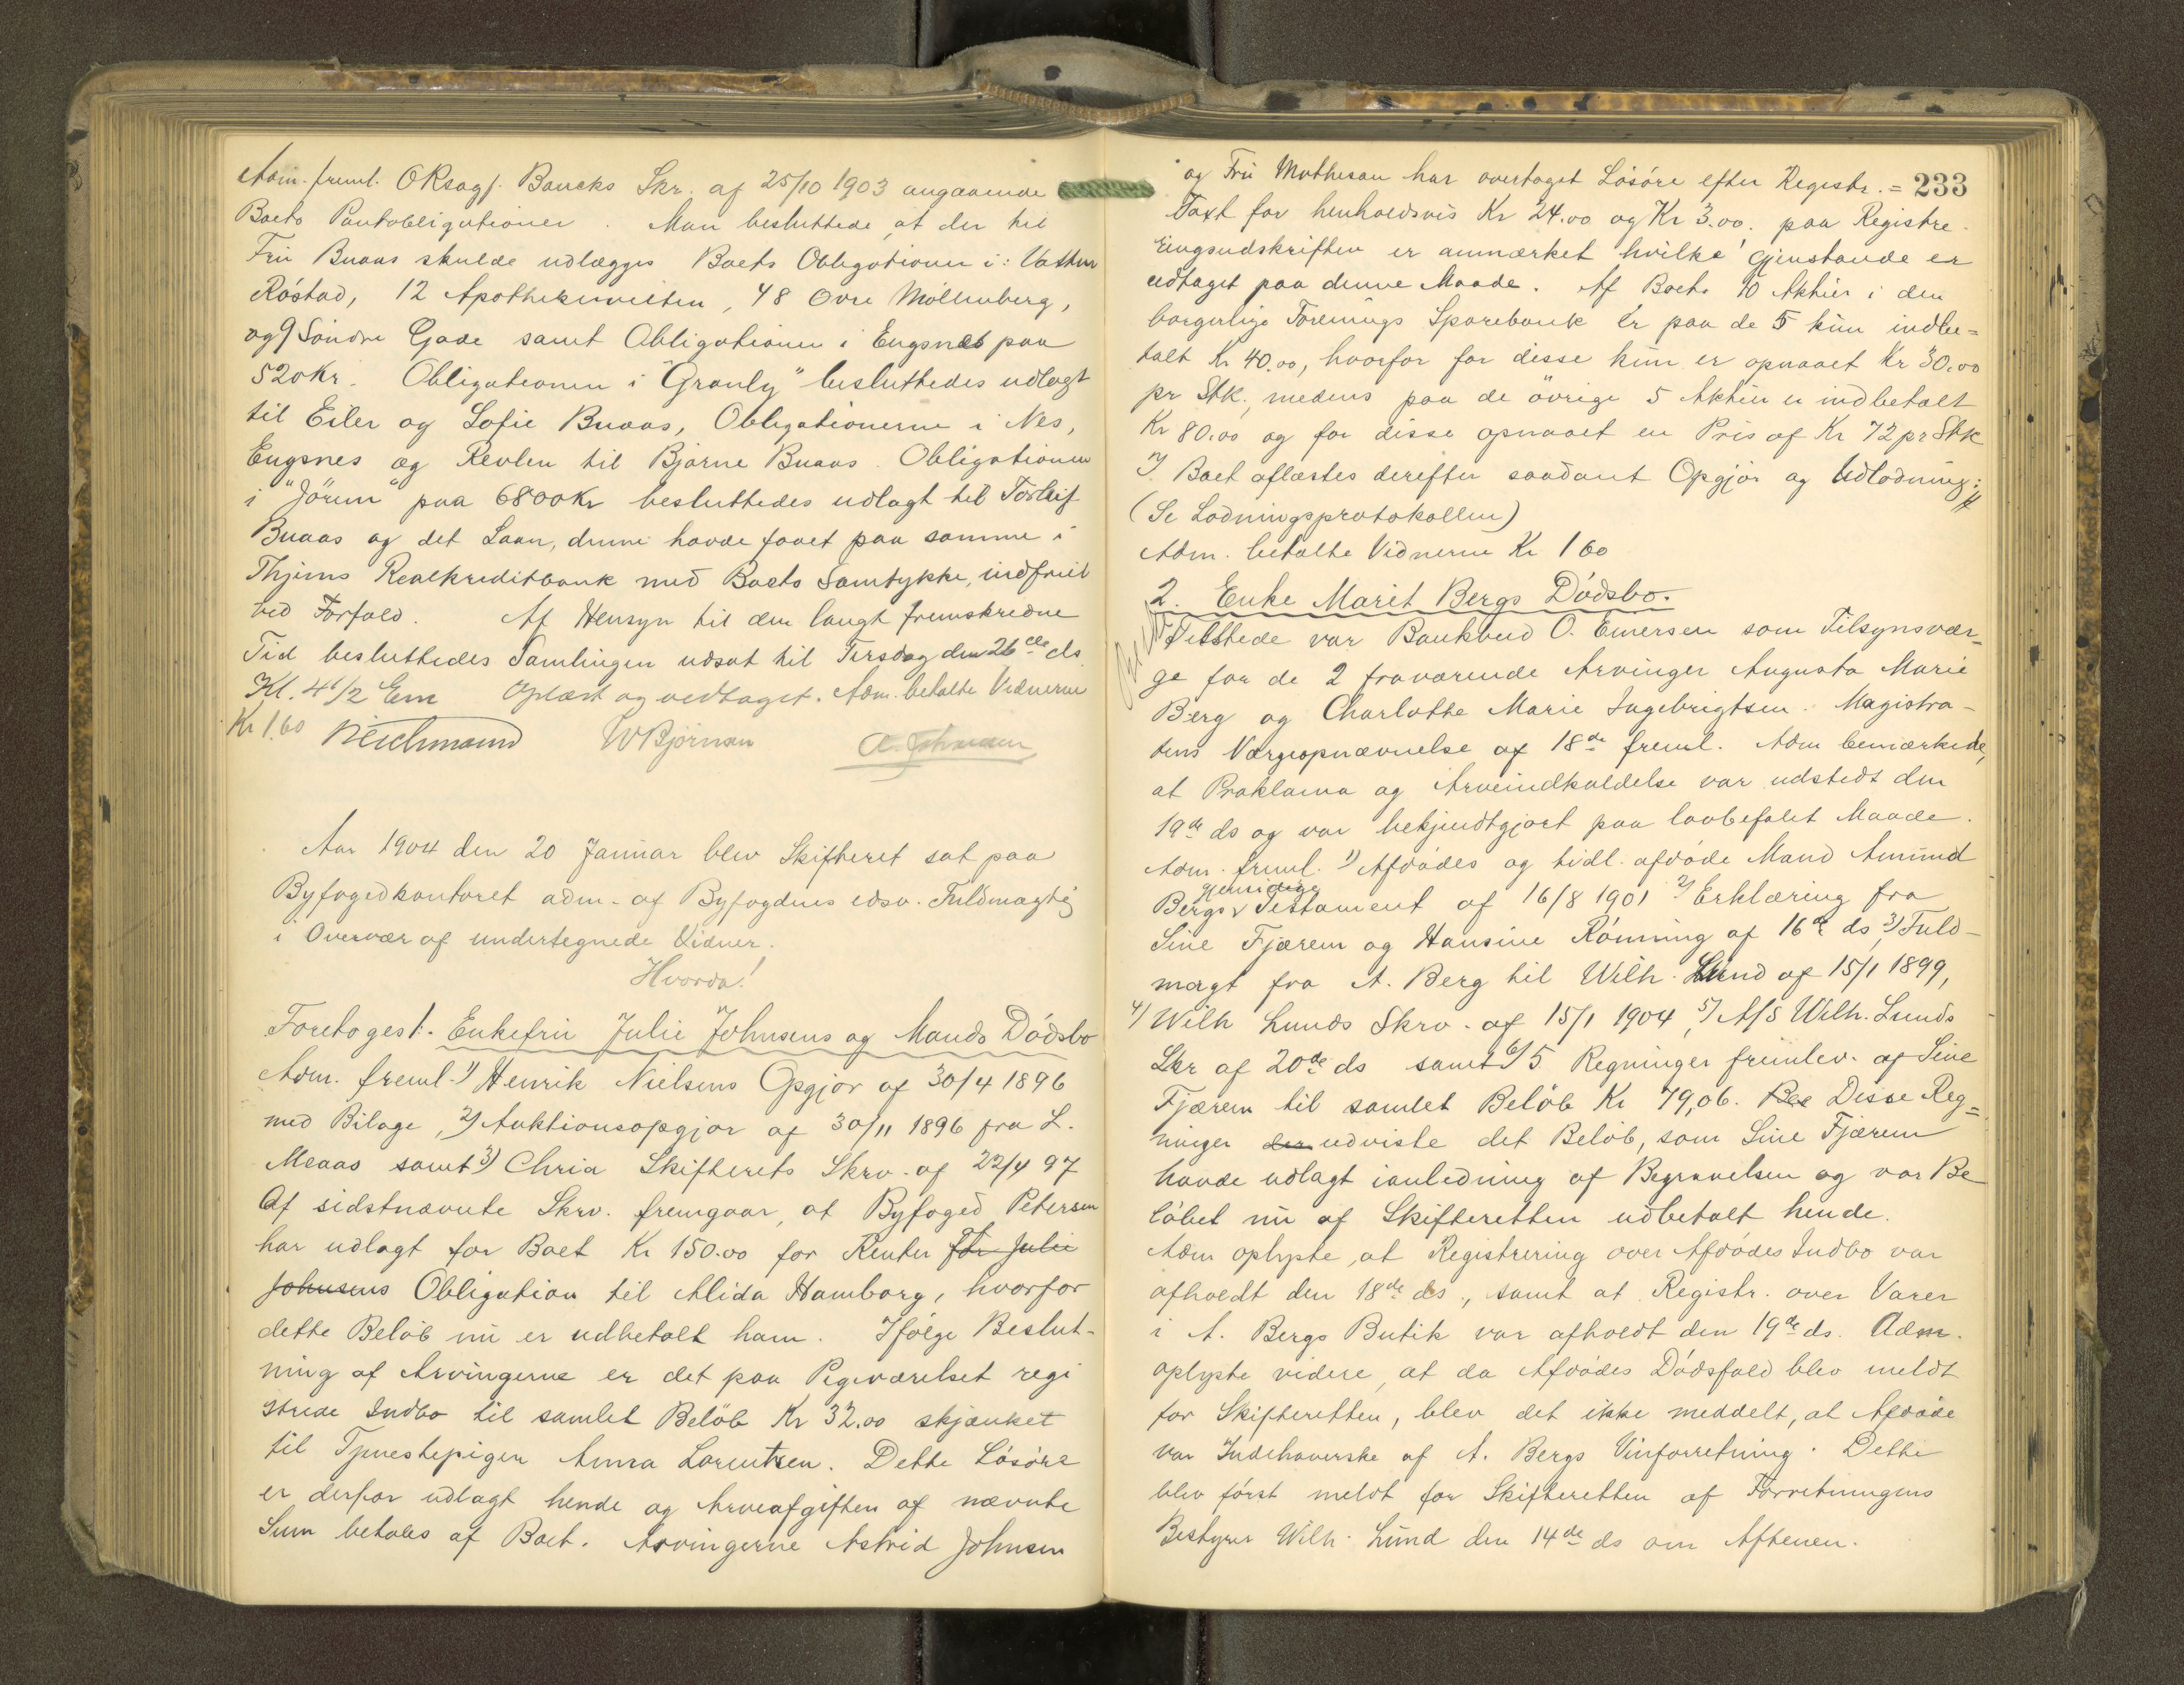 Adm. freml. ORsagf. Baucks Skr. af 25/10 1903 angaaende
Boets Pantobligationer. Man besluttede, at der til
Fru Buaas skulde udlægges Boets Obligationer i: Vatten
Röstad, 12 Apothekerveiten, 48 Ovre Möllenberg,
og 9 Söndre Gade samt Obligationen i Engsnes paa
520 Kr. Obligationen i "Granly" besluttedes udlagt
til Eiler og Sofie Buaas, Obligationerne i Nes,
Engsnes og Revlen til Bjarne Buaas. Obligationen
i "Jörum" paa 6800 Kr besluttedes udlagt til Torleif
Buaas og det Laan, denne havde faaet paa samme i
Thjems Realkreditbank med Boets Samtykke, indfriet
ved Forfald. Af Hensyn til den langt fremskredne
Tid besluttedes Samlingen udsat til Tirsdag den 26de ds
Kl. 4 1/2 Em Oplæst og vedtaget. Adm. betalte Vidnerne
Kr 1.60 Reichmann W Björnsen A. Johnsen
Aar 1904 den 20 Januar blev Skifteret sat paa
Byfogedkontoret adm. af Byfogdens edsv. Fuldmægtig
i Overvær af undertegnede Vidner.
Hvorda!
Foretoges 1. Enkefru Julie Johnsens og Mands Dödsbo
Adm. freml. 1) Henrik Nielsens Opgjör af 30/4 1896
med Bilage, 2) Auktionsopgjör af 30/11 1896 fra L.
Meaas samt 3) Chria Skifterets Skrv. af 22/4 97
Af sidstnævnte Skrv. fremgaar, at Byfoged Petersen
har udlagt for Boet Kr 150.00 for Renter for Julie
Johnsens Obligation til Alida Hamborg, hvorfor
dette Belöb nu er udbetalt ham. Ifölge Beslut-
ning af Arvingerne er det paa Pigeværelset regi
strede Indbo til samlet Belöb Kr 32.00 skjænket
til Tjenestepigen Anna Lorentzen. Dette Lösöre
er derfor udlagt hende og Arveafgiften af nævnte
Sum betales af Boet. Arvingerne Astrid Johnsen
og Fru Mathesen har overtaget Lösöre efter Registr.= 233
Taxt for henholdsvis Kr 24.00 og Kr 3.00. paa Registre-
ringsudskriften er anmærket hvilke Gjenstande er
udtaget paa denne Maade. Af Boets 10 Aktier i den
borgerlige Forenings Sparebank er paa de 5 kun indbe=
talt Kr 40.00, hvorfor for disse kun er opnaaet Kr 30.00
pr Stk., medens paa de övrige 5 Aktier er indbetalt
Kr 80.00 og for disse opnaaet en Pris af Kr 72 pr Stk
I Boet aflæstes derefter saadant Opgjör og Udlodning:
(Se Lodningsprotokollen)
Adm. betalte Vidnerne Kr 1 60
2. Enke Marit Bergs Dödsbo.
Tilstede var Bankbud O. Einersen som Tilsynsvær-
ge for de 2 fraværende Arvinger Augusta Marie
Berg og Charlotte Marie Ingebrigtsen. Magistra-
tens Værgeopnævnelse af 18de freml. Adm bemærkede,
at Proklama og Arveindkaldelse var udstedt den
19de ds og var bekjendtgjort paa lovbefalet Maade.
Adm. freml. 1) Afdödes og tidl. afdöde Mand Amund
gjensidige
Bergs v Testament af 16/8 1901 2) Erklæring fra
Sine Fjærem og Hansine Rönning af 16de ds, 3) Fuld-
magt fra A. Berg til Wilh. Lund af 15/1 1899,
4) Wilh Lunds Skrv. af 15/1 1904, 5) A/S Wilh. Lunds
Skr af 20de ds samt 6) 5 Regninger fremlev. af Sine
Fjærem til samlet Belöb Kr 79,06. Bee Disse Reg=
ninger der udviste det Belöb, som Sine Fjærem
havde udlagt ianledning af Begravelsen og var Be
löbet nu af Skifteretten udbetalt hende.
Adm oplyste, at Registrering over Afdödes Indbo var
afholdt den 18de ds., samt at Registr. over Varer
i A. Bergs Butik var afholdt den 19de ds. Adm.
oplyste videre, at da Afdödes Dödsfald blev meldt
for Skifteretten, blev det ikke meddelt, at Afdöde
var Indehaverske af A. Bergs Vinforretning. Dette
blev först meldt for Skifteretten af Forretningens
Bestyrer Wilh. Lund den 14de ds om Aftenen.